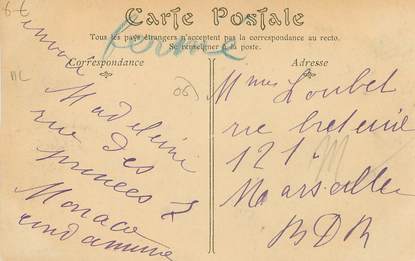 Carte Postale
Tous les pays étrangers n'acceptent pas la correspondance au recto.
Se renseigner à la poste.
ferme
Correspondance
Adresse
Madeleine
rue des
princes 7
Monaco
condamine
Mme Loubet
rue breteuil
121
Marseille
BDR
06